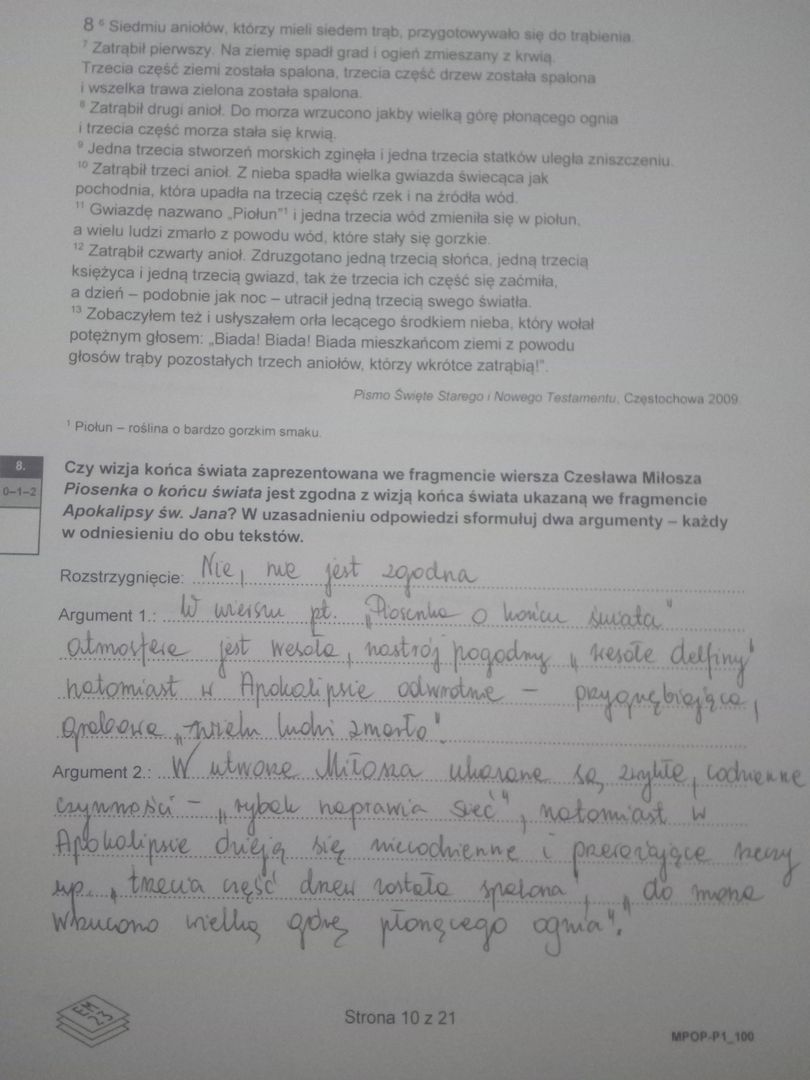 8 ⁶ Siedmiu aniołów, którzy mieli siedem trąb, przygotowywało się do trąbienia.
⁷ Zatrąbił pierwszy. Na ziemię spadł grad i ogień zmieszany z krwią.
Trzecia część ziemi została spalona, trzecia część drzew została spalona
i wszelka trawa zielona została spalona.
⁸ Zatrąbił drugi anioł. Do morza wrzucono jakby wielką górę płonącego ognia
i trzecia część morza stała się krwią.
⁹ Jedna trzecia stworzeń morskich zginęła i jedna trzecia statków uległa zniszczeniu.
¹⁰ Zatrąbił trzeci anioł. Z nieba spadła wielka gwiazda świecąca jak
pochodnia, która upadła na trzecią część rzek i na źródła wód.
¹¹ Gwiazdę nazwano „Piołun”¹ i jedna trzecia wód zmieniła się w piołun,
a wielu ludzi zmarło z powodu wód, które stały się gorzkie.
¹² Zatrąbił czwarty anioł. Zdruzgotano jedną trzecią słońca, jedną trzecią
księżyca i jedną trzecią gwiazd, tak że trzecia ich część się zaćmiła,
a dzień – podobnie jak noc – utracił jedną trzecią swego światła.
¹³ Zobaczyłem też i usłyszałem orła lecącego środkiem nieba, który wołał
potężnym głosem: „Biada! Biada! Biada mieszkańcom ziemi z powodu
głosów trąby pozostałych trzech aniołów, którzy wkrótce zatrąbią!”.
Pismo Święte Starego i Nowego Testamentu, Częstochowa 2009.
¹ Piołun – roślina o bardzo gorzkim smaku.
8.
0–1–2
Czy wizja końca świata zaprezentowana we fragmencie wiersza Czesława Miłosza
Piosenka o końcu świata jest zgodna z wizją końca świata ukazaną we fragmencie
Apokalipsy św. Jana? W uzasadnieniu odpowiedzi sformułuj dwa argumenty – każdy
w odniesieniu do obu tekstów.
Rozstrzygnięcie: Nie, nie jest zgodna
Argument 1.: W wierszu pt. „Piosenka o końcu świata"
atmosfera jest wesoła, nastrój pogodny „wesołe delfiny"
natomiast w Apokalipsie odwrotnie – przygnębiająca,
grobowa „wielu ludzi zmarło".
Argument 2.: W utworze Miłosza ukazane są zwykłe, codzienne
czynności – „rybak naprawia sieć", natomiast w
Apokalipsie dzieją się niecodzienne i przerażające rzeczy
np. „trzecia część drzew została spalona", „do morza
wrzucono wielką górę płonącego ognia".
EM
23
Strona 10 z 21
MPOP-P1_100